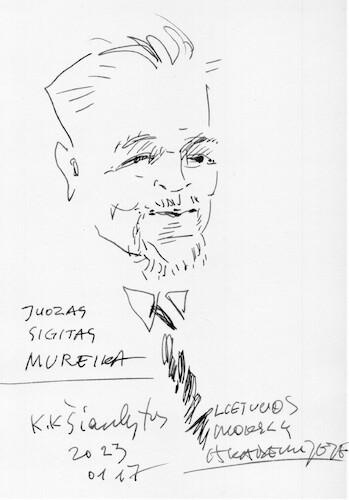 JUOZAS
SIGITAS
MUREIKA
K.K Šiaulytis
2023
01 17
LIETUVOS
MOKSLŲ
AKADEMIJOJE